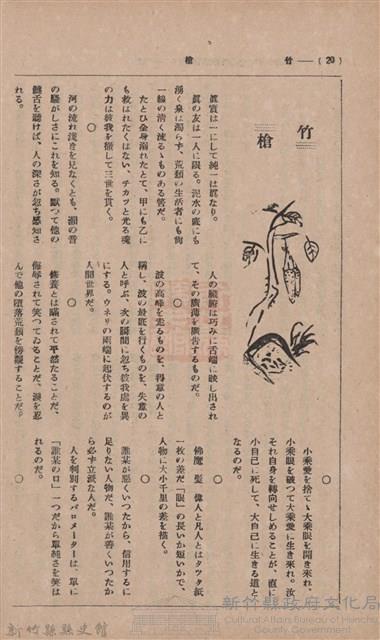 (20)——竹槍
竹槍
眞實は一にして純一は眞なり。
眞の友は一人に限る。泥水の底にも
湧く泉は濁らず、荒頽の生活者にも尙
一線の淸く流るゝものある筈だ。
たとひ全身溺れたとて、甲にも乙に
も救はれたくはない、チカッと光る魂
の力は彼我を徹して三世を貫く。
○
河の流れ淺きを見なくとも、瀨の音
の騷がしさにこれを知る。默つて他の
饒舌を聽けば、人の深さが忽ち感知さ
れる。
○
人の臟腑は巧みに舌端に映し出され
て、その廣薄を廣告するものだ。
○
波の高峰を走るものを、得意の人と
稱し、波の最底を行くものを、失意の
人と呼ぶ、次の瞬間に忽ち彼我處を異
にする。ウネリの兩端に起伏するのが
人間世界だ。
○
修養とは瞞されて平然たることだ、
侮辱されて笑つてゐることだ、淚を忍
んで他の墮落荒頽を傍觀することだ。
○
小乘愛を捨てゝ大乘眼を開き來れ、
小乘眼を破つて大乘愛に生き來れ。汝
それ自身を轉向せしめることが、直に
小自己に死して、大自己に生きる道と
なるのだ。
○
佛魔 聖 偉人と凡人とはタツタ紙
一枚の差だ「眼」の長いか短いかで、
人物に大小千里の差を描く。
○
誰某が惡くいつたから、信用するに
足りない人物だ、誰某が善くいつたか
ら必ず立派な人だ。
人を判別するバロメーターは、單に
「誰某の口」一つだから單純さを笑は
れるのだ。
○
新竹縣縣史館
新竹縣政府文化局
Cultural Affairs Bureau of Hsinchu
County Government